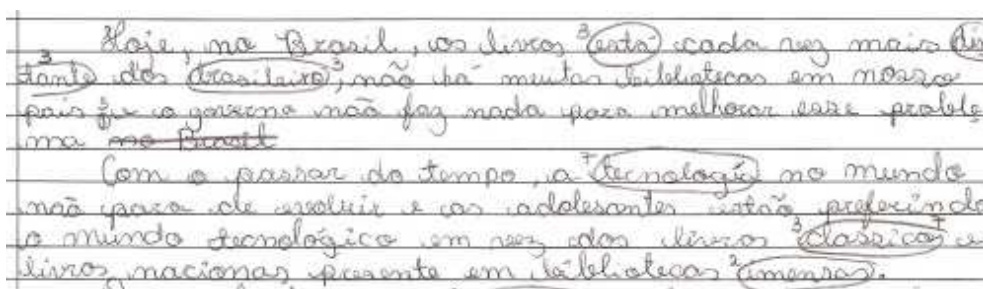 Hoje, no Brasil, os livros está cada vez mais dis
tante dos brasileiro, não há muitas bibliotecas em nosso
pais e o governo não faz nada para melhorar esse proble
ma no Brasil
Com o passar do tempo, a tecnologia no mundo
não para de evoluir e os adolesentes estão preferindo
o mundo tecnológico em vez dos livros classicos e
livros nacionas presente em bibliotecas imensas.